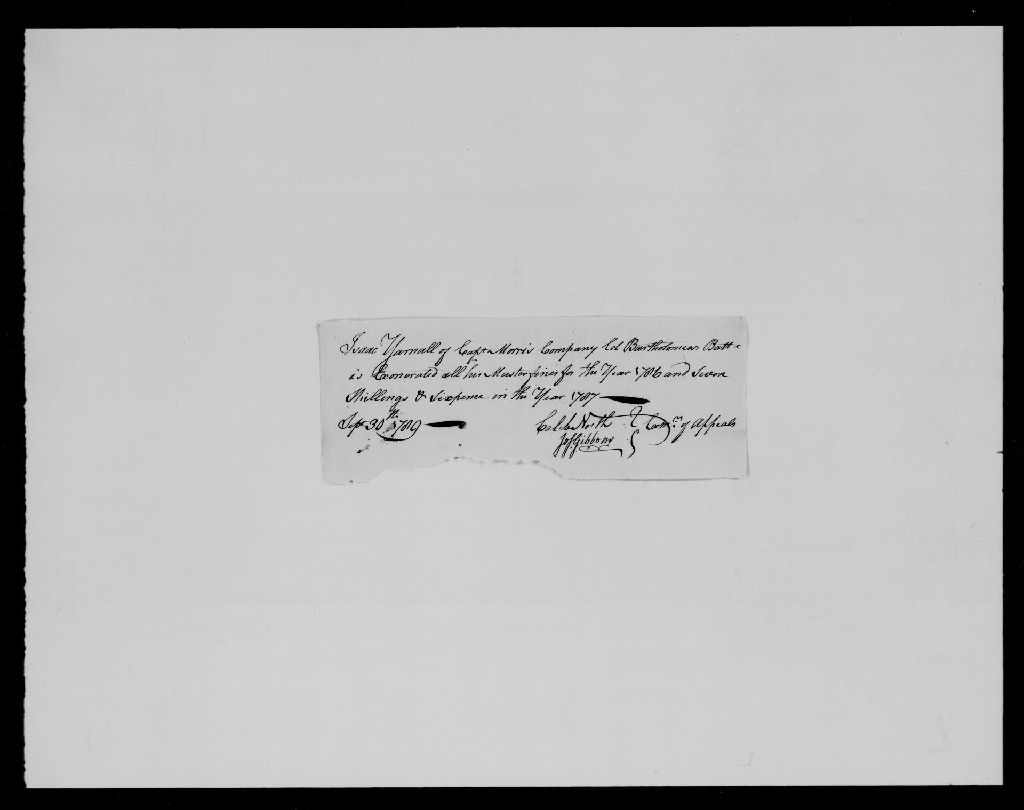 Isaac Yarnall of Capt Morris Company Col Bartholomew Batt
is Exonerated all his Muster fines for the Year 1786 and Seven
Shillings & Sixpence in the Year 1787
Sept 30th 1789 Caleb North Com of Appeals
Jas Gibbons